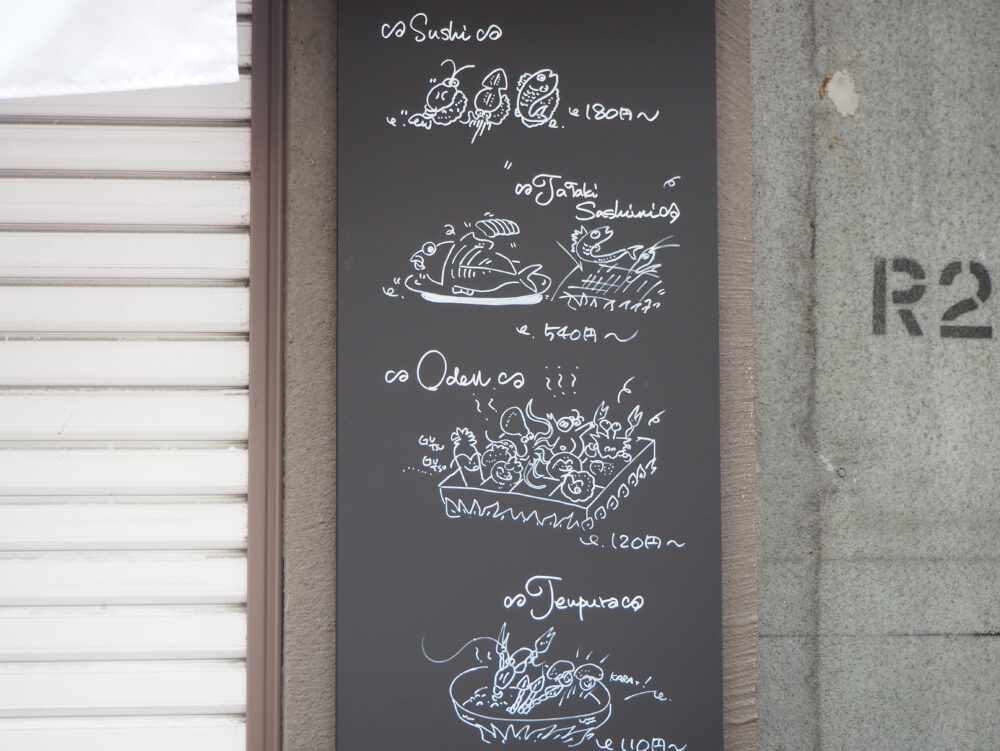 Sushi
180円~
Tataki
Sashimi
540円~
R2
Oden
GUTSU
GUTSU
120円~
Tenpura
KARA!
110円~